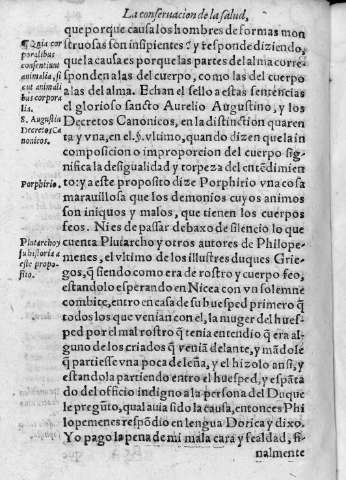 La conseruacion de la salud,
que porque causa los hombres de formas mon
struosas son insipientes? y responde diziendo,
que la causa es porque las partes del alma corre-
sponden a las del cuerpo, como las del cuerpo
a las del alma. Echan el sello a estas sentencias
el glorioso sancto Aurelio Augustino, y los
Decretos Canonicos, en la distinctiõ quaren
ta y vna, en el.§. vltimo, quando dizen que la in
composicion o improporcion del cuerpo sig-
nifica la desigualdad y torpeza del entẽdimiẽ-
to: y a este proposito dize Porphirio vna cosa
marauillosa que los demonios cuyos animos
son iniquos y malos, que tienen los cuerpos
feos. Ni es de passar debaxo de silencio lo que
cuenta Plutarcho y otros autores de Philope-
menes, el vltimo de los illustres duques Grie-
gos, q̃ siendo como era de rostro y cuerpo feo,
estandolo esperando en Nicea con vn solemne
combite, entro en casa de su huesped primero q̃
todos los que venian con el, la muger del hues-
ped por el mal rostro q̃ tenia entendio q̃ era al-
guno de los criados q̃ veniã delante, y mãdole
q̃ partiesse vna poca de leña, y el hizolo ansi, y
estandola partiendo entro el huesped, y espãta
do del officio indigno a la persona del Duque
le pregũto, qual auia sido la causa, entonces Phi
lopemenes respõdio en lengua Dorica y dixo.
Yo pago la pena de mi mala cara y fealdad, fi-
nalmente
¶ Quia cor
poralibus
consentiunt
animalia, si
cut animali
bus corpora
lia.
S. Augustin
Decretos Ca
nonicos.
Porphirio.
Plutarcho y
su historia a
este propo-
sito.